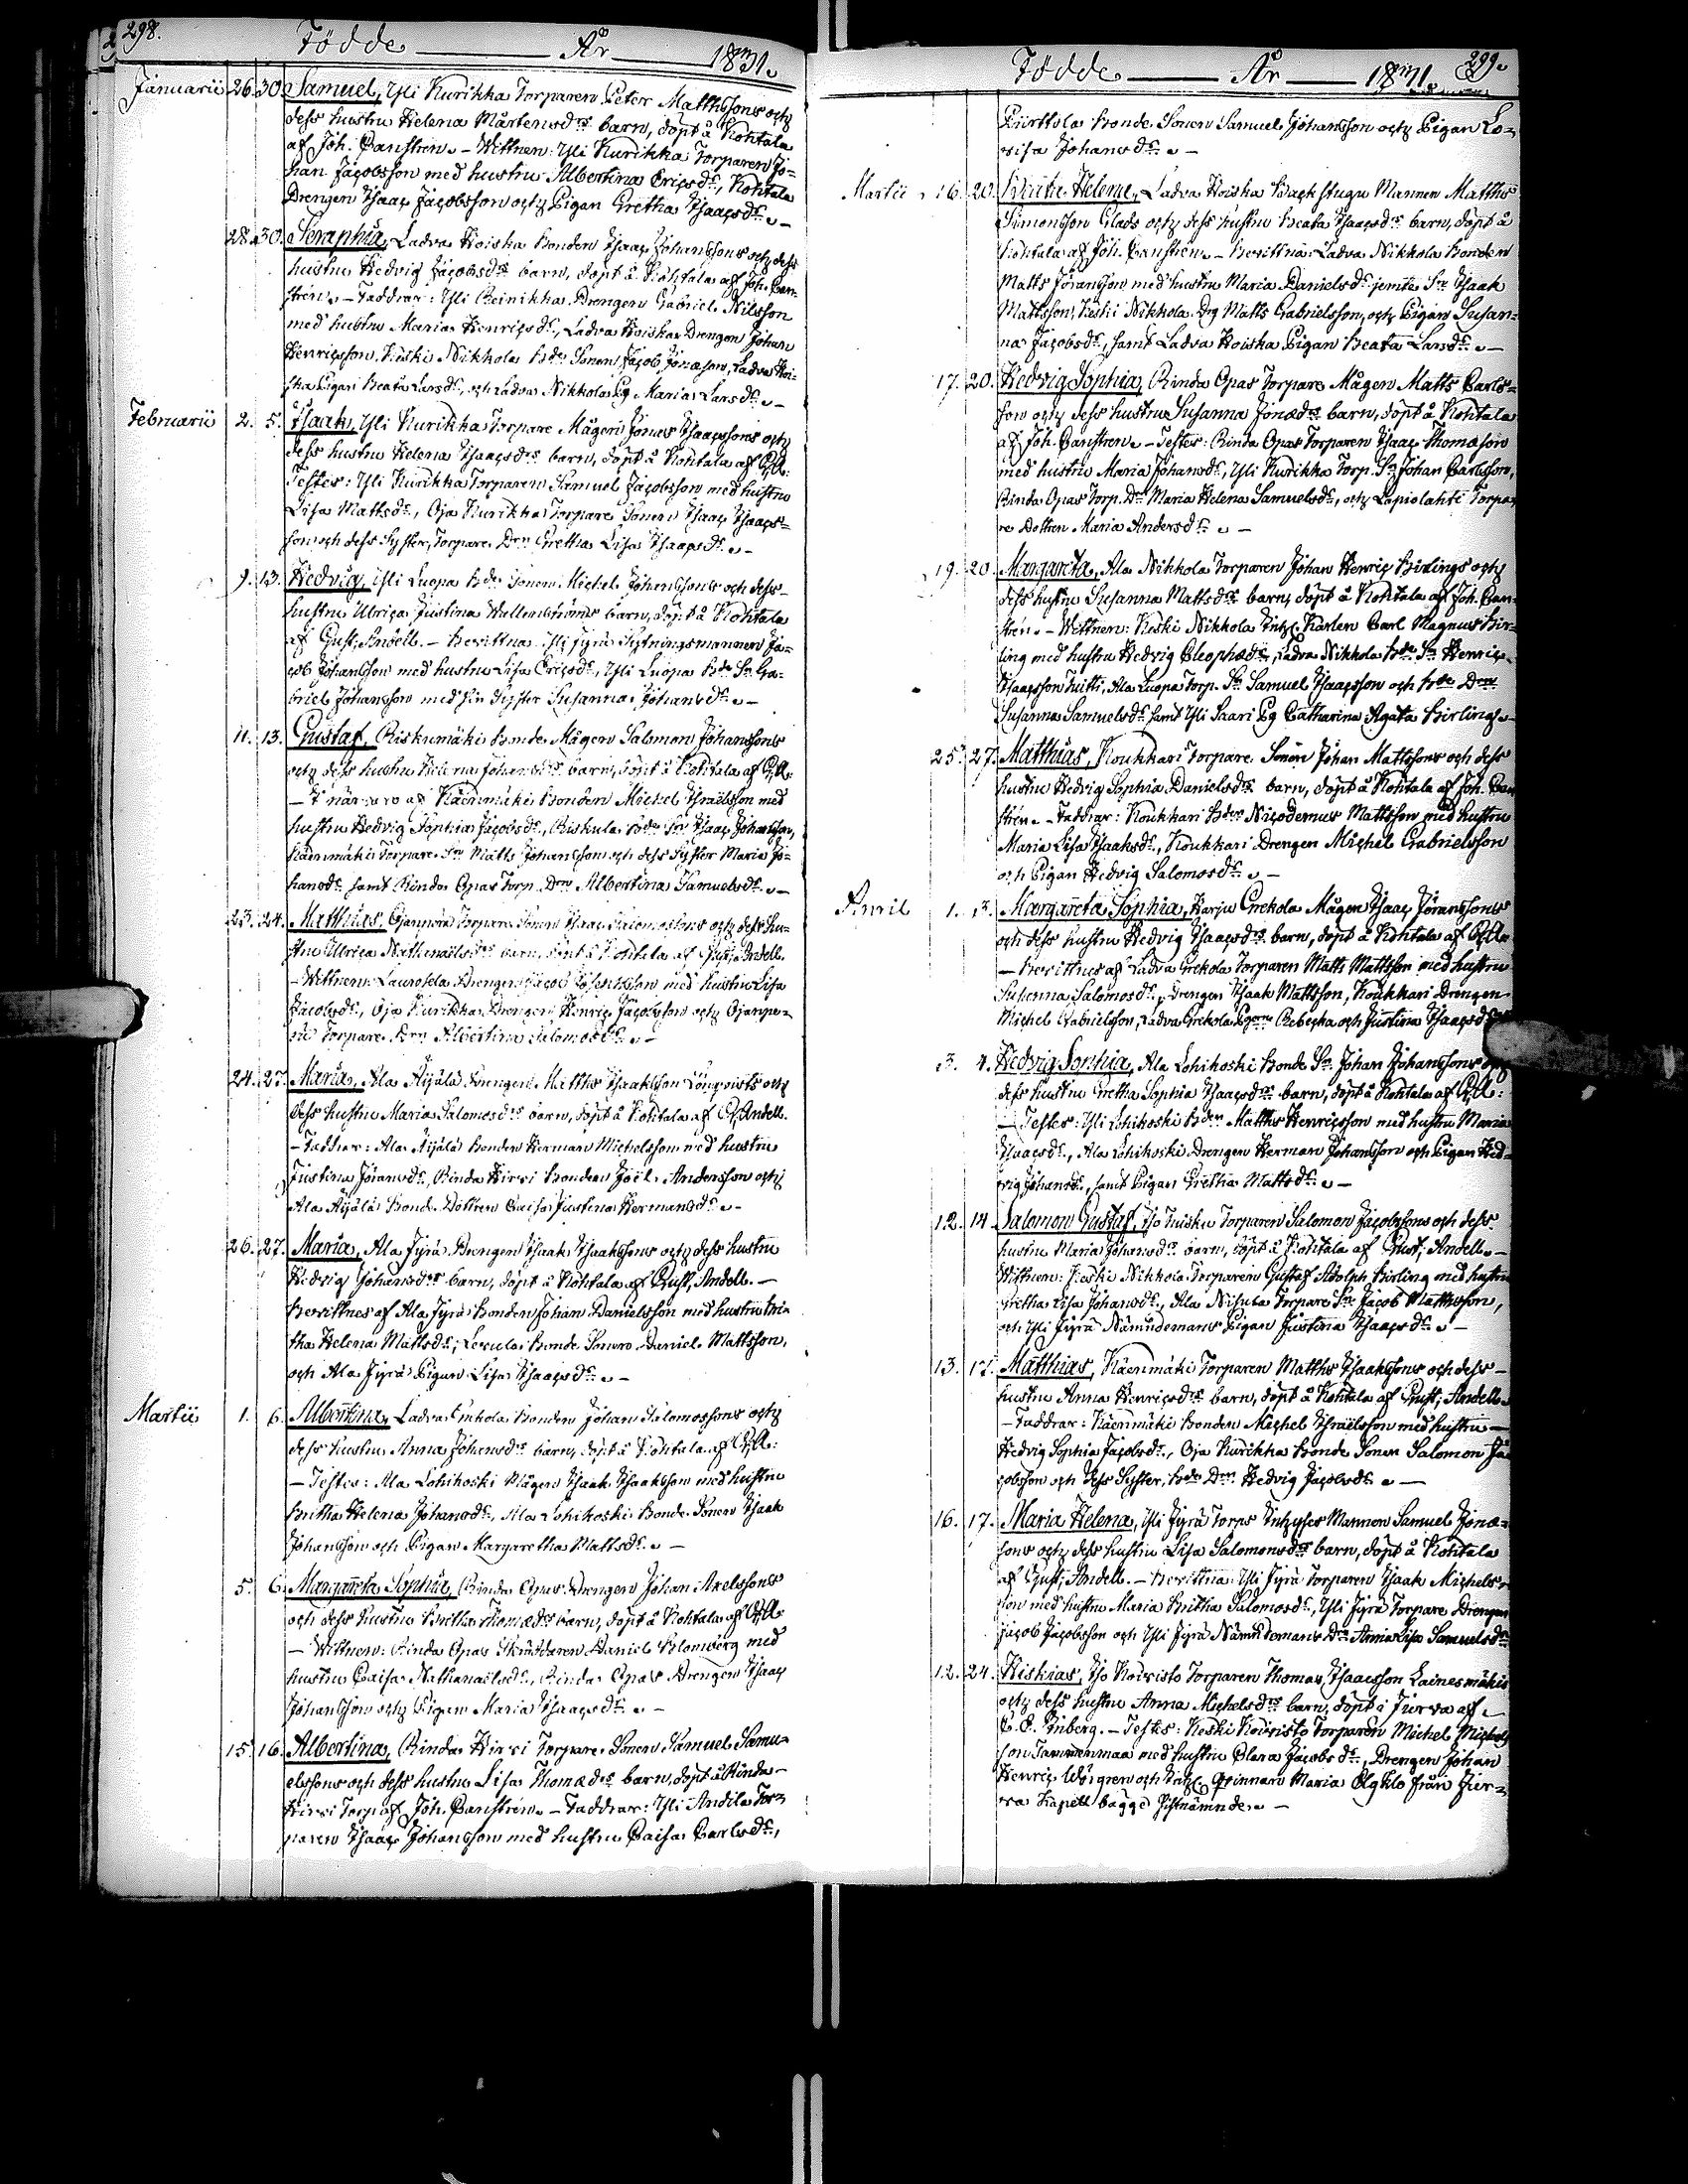 298.
Födde År 1831.
Januarii 26. 30. Samuel, Yli Kurikka Torparen Peter Matthssons och
dess hustru Helena Mårtensdrs barn, döpt å Kohtala
af Joh. Canstrén. – Wittnen: Yli Kurikka Torparen Jo=
han Jacobsson med hustru Albertina Ericsdr, Kohtala
Drengen Isaac Jacobsson och Pigan Gretha Isaacsdr. –
28. 30. Seraphia, Ladva Hoiska Bonden Isaac Johanssons och dess
hustru Hedvig Jacobsdrs barn, döpt å Kohtala af Joh. Can=
strén. – Faddrar: Yli Reinikka Drengen Gabriel Nilsson
med hustru Maria Henricsdr, Ladva Hoiska Drengen Johan
Henricsson, Keski Nikkola Bde Sonen Jacob Jonæson, Ladva Hoi=
ska Pigan Beata Larsdr, och Ladva Nikkola Pg Maria Larsdr. –
Februarii 2. 5. Isaak, Yli Kurikka Torpare Mågen Jonas Isaacssons och
dess hustru Helena Isaacsdrs barn, döpt å Kohtala af GA:
Testes: Yli Kurikka Torparen Samuel Jacobsson med hustru
Lisa Mattsdr, Oja Kurikka Torpare Sonen Isaac Isaacs=
son och dess Syster, Torpare Drn Gretha Lisa Isaacsdr. –
9. 13. Hedvig, Yli Luopa Bde Sonen Michel Johanssons och dess
hustru Ulrica Justina Wallenströms barn, döpt å Kohtala
af Gust, Andell. – Bevittna: Yli Jyrä Sytningsmannen Ja=
cob Johansson med hustru Lisa Ericsdr, Yli Luopa Bde Sn Ga=
briel Johansson med sin Syster Susanna Johansdr. –
11. 13. Gustaf, Riskumäki Bonde Mågen Salomon Johanssons
och dess hustru Helena Johansdrs barn, döpt å Kohtala af GA.
– I närvaro af Käenmäki Bonden Michel Israëlsson med
hustru Hedvig Sophia Jacobsdr, Riskula Bde Sn Isaac Johansson,
Käenmäki Torpare Sn Matts Johansson och dess Syster Maria Jo=
hansdr samt Rinda Opas Torp. Drn Albertina Samuelsdr. –
23. 24. Matthias, Ojanperä Torpare Sonen Isaac Salomossons och dess hu=
stru Ulrica Nathanaëlsdrs barn, döpt å Kohtala af Gust, Andell.
– Wittnen: Laurosela Drengen Jacob Josephsson med hustru Lisa
Jacobsdr, Oja Kurikka Drengen Henric Jacobsson och Ojanpe=
rä Torpare Drn Albertina Salomosdr. –
24. 27. Maria, Ala Äijälä Drengen Matths Isaaksson Lönqvists och
dess hustru Maria Salomosdrs barn, döpt å Kohtala af G, Andell.
– Faddrar: Ala Äijälä Bonden Herman Michelsson med hustru
Justina Jöransdr, Rinda Hirvi Bonden Joël Andersson och
Ala Äijälä Bonde Dottren Caisa Justina Hermansdr. –
26. 27. Maria, Ala Jyrä Drengen Isaak Isaakssons och dess hustru
Hedvig Johansdrs barn, döpt å Kohtala af Gust, Andell. –
Bevittnes af Ala Jyrä Bonden Johan Danielsson med hustru Bri=
tha Helena Mattsdr, Bonde Sonen Daniel Mattsson,
och Ala Jyrä Pigan Lisa Isaacsdr. –
Martii 1. 6. Albertina, Ladva Bonden Johan Salomossons och
dess hustru Anna Johansdrs barn, döpt å Kohtala af GA:
– Testes: Ala Lohikoski Mågen Isaak Isaaksson med hustru
Britha Helena Johansdr, Ala Lohikoski Bonde Sonen Isaak
Johansson och Pigan Margaretha Mattsdr. –
5. 6. Margareta Sophia, Rinda Opas Drengen Johan Axelssons
och dess hustru Britha Thomædrs barn, döpt å Kohtala af GA.
– Wittnen: Rinda Opas Skräddaren Daniel Blomberg med
hustru Caisa Nathanaëlsdr, Rinda Opas Drengen Isaac
Johansson och Pigan Maria Isaacsdr. –
15. 16. Albertina, Rinda Hirvi Torpare Sonen Samuel Samu=
elssons och dess hustru Lisa Thomædrs barn, döpt å Rinda
Hirvi Torp af Joh. Canstrén. – Faddrar: Yli Andila Tor=
paren Isaac Johansson med hustru Caisa Carlsdr,
299.
Födde År 1831.
Piirttola Bonde Sonen Samuel Johansson och Pigan Lo=
visa Johansdr. –
Martii 16. 20. Beata Helena, Ladva Hoiska Backstugu Mannen Matths
Simonsson Glads och dess hustru Beata Isaacsdrs barn, döpt å
Kohtala af Joh. Canstrén. – Bevittna: Ladva Nikkola Bonden
Matts Jöransson med hustru Maria Danielsdr jemte Sn Isaak
Mattsson, Keski Nikkola Drg Matts Gabrielsson, och Pigan Susan=
na Jacobsdr, samt Ladva Hoiska Pigan Beata Larsdr. –
17. 20. Hedvig Sophia, Rinda Opas Torpare Mågen Matts Carls=
son och dess hustru Susanna Jonædrs barn, döpt å Kohtala
af Joh. Canstrén. – Testes: Rinda Opas Torparen Isaac Thomæson
med hustru Maria Johansdr, Yli Kurikka Torp. Sn Johan Carlsson,
Rinda Opas Torp. Dr Maria Helena Samuelsdr, och Lapiolahti Torpa=
re Dottren Maria Andersdr. –
19. 20. Margareta, Ala Nikkola Torparen Johan Henric Birlings och
dess hustru Susanna Mattsdrs barn, döpt å Kohtala af Joh. Can=
strén. – Wittnen: Keski Nikkola Inhs Karlen Carl Magnus Bir=
ling med hustru Hedvig Cleophædr, Ladva Nikkola Bde Sn Henric
Isaacsson Tuitti, Ala Luopa Torp. Sn Samuel Isaacsson och Bde Drn
Susanna Samuelsdr samt Yli Saari Pg Catharina Agata Birling. –
25. 27. Matthias, Koukkari Torpare Sonen Johan Mattssons och dess
hustru Hedvig Sophia Danielsdrs barn, döpt å Kohtala af Joh. Can
strén. – Faddrar: Koukkari Bden Nicodemus Mattsson med hustru
Maria Lisa Isaaksdr, Koukkari Drengen Michel Gabrielsson
och Pigan Hedvig Salomosdr. –
April 1. 3. Margareta Sophia, Harju Grekola Mågen Isaac Jöranssons
och dess hustru Hedvig Isaacsdrs barn, döpt å Kohtala af GA.
– Bevittnes af Ladva Grekola Torparen Matts Mattsson med hustru
Susanna Salomosdr, Drengen Isaak Mattsson, Koukkari Drengen
Michel Gabrielsson, Ladva Grekola Pgorne Rebecka och Justina Isaacsd
3. 4. Hedvig Sophia, Ala Lohikoski Bonde Sn Johan Johanssons och
dess hustru Gretha Sophia Isaacsdrs barn, döpt å Kohtala af GA:
– Testes: Yli Lohikoski Bden Matths Henricsson med hustru Maria
Isaacsdr, Ala Lohikoski Drengen Herman Johansson och Pigan Hed=
vig Johansdr, samt Pigan Gretha Mattsdr. –
12. 14. Salomon Gustaf, Iso Tuisku Torparen Salomon Jacobssons och dess
hustru Maria Johansdrs barn, döpt å Kohtala af Gust, Andell. –
Wittnen: Keski Nikkola Torparen Gustaf Adolph Birling med hustru
Gretha Lisa Johansdr, Ala Nisula Torpare Sn Jacob Matthsson,
och Yli Jyrä Nämndemans Pigan Justina Isaacsdr. –
13. 17. Matthias, Käenmäki Torparen Matths Isaakssons och dess
hustru Anna Henricsdrs barn, döpt å Kohtala af Gust, Andell.
– Faddrar: Käenmäki Bonden Michel Israëlsson med hustru
Hedvig Sophia Jacobsdr, Oja Kurikka Bonde Sonen Salomon Ja
cobsson och dess Syster, Bde Drn Hedvig Jacobsdr. –
16. 17. Maria Helena, Yli Jyrä Torps Inhyses Mannen Samuel Jonæ=
sons och dess hustru Lisa Salomonsdrs barn, döpt å Kohtala
af Gust, Andell. – Bevittna: Yli Jyrä Torparen Isaak Michels=
son med hustru Maria Britha Salomosdr, Yli Jyrä Torpare Drengen
Jacob Jacobsson och Yli Jyrä Nämndemans Dr Anna Lisa Samuelsdr
12. 24. Hiskias, Iso Koivisto Torparen Thomas Isaacsson Lainesmäkis
och dess hustru Anna Michelsdrs barn, döpt i Jurva af
C. E. Rinberg. – Testes: Keski Koivisto Torparen Michel Michels
son Tammenmaa med hustru Clara Jacobsdr, Drengen Johan
Henric och Inhs Qvinnan Maria från Jur=
va Kapell bägge sistnämnde. –